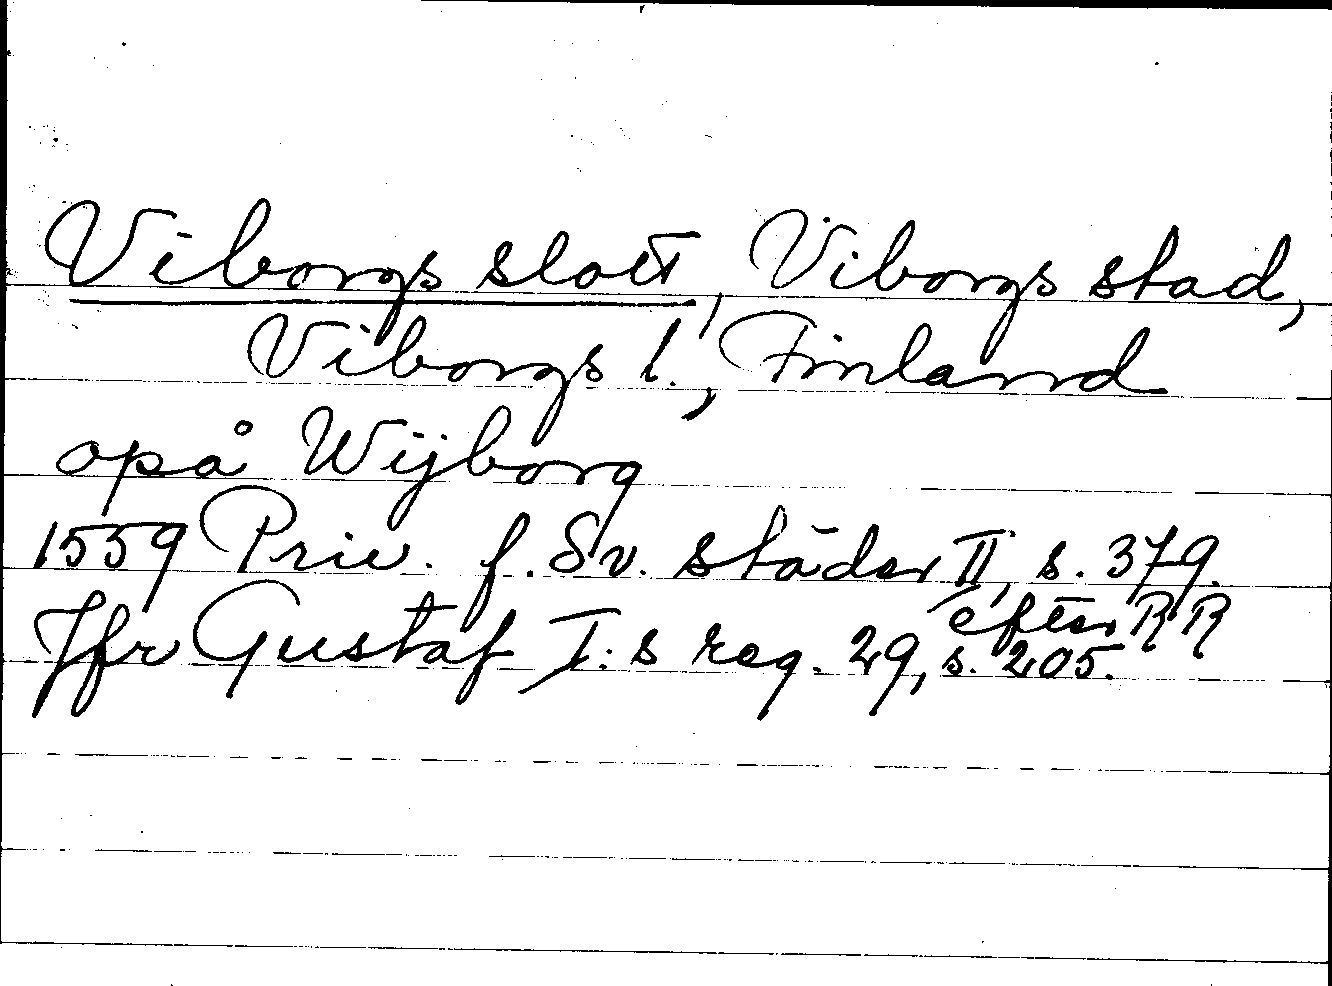 Viborgs slott, Viborgs stad,
Viborgs l., Finland
opå Wijborg
1559 Priv. f. Sv. städer II, s. 379.
efter RR
Jfr Gustaf I:s reg. 29, s. 205.